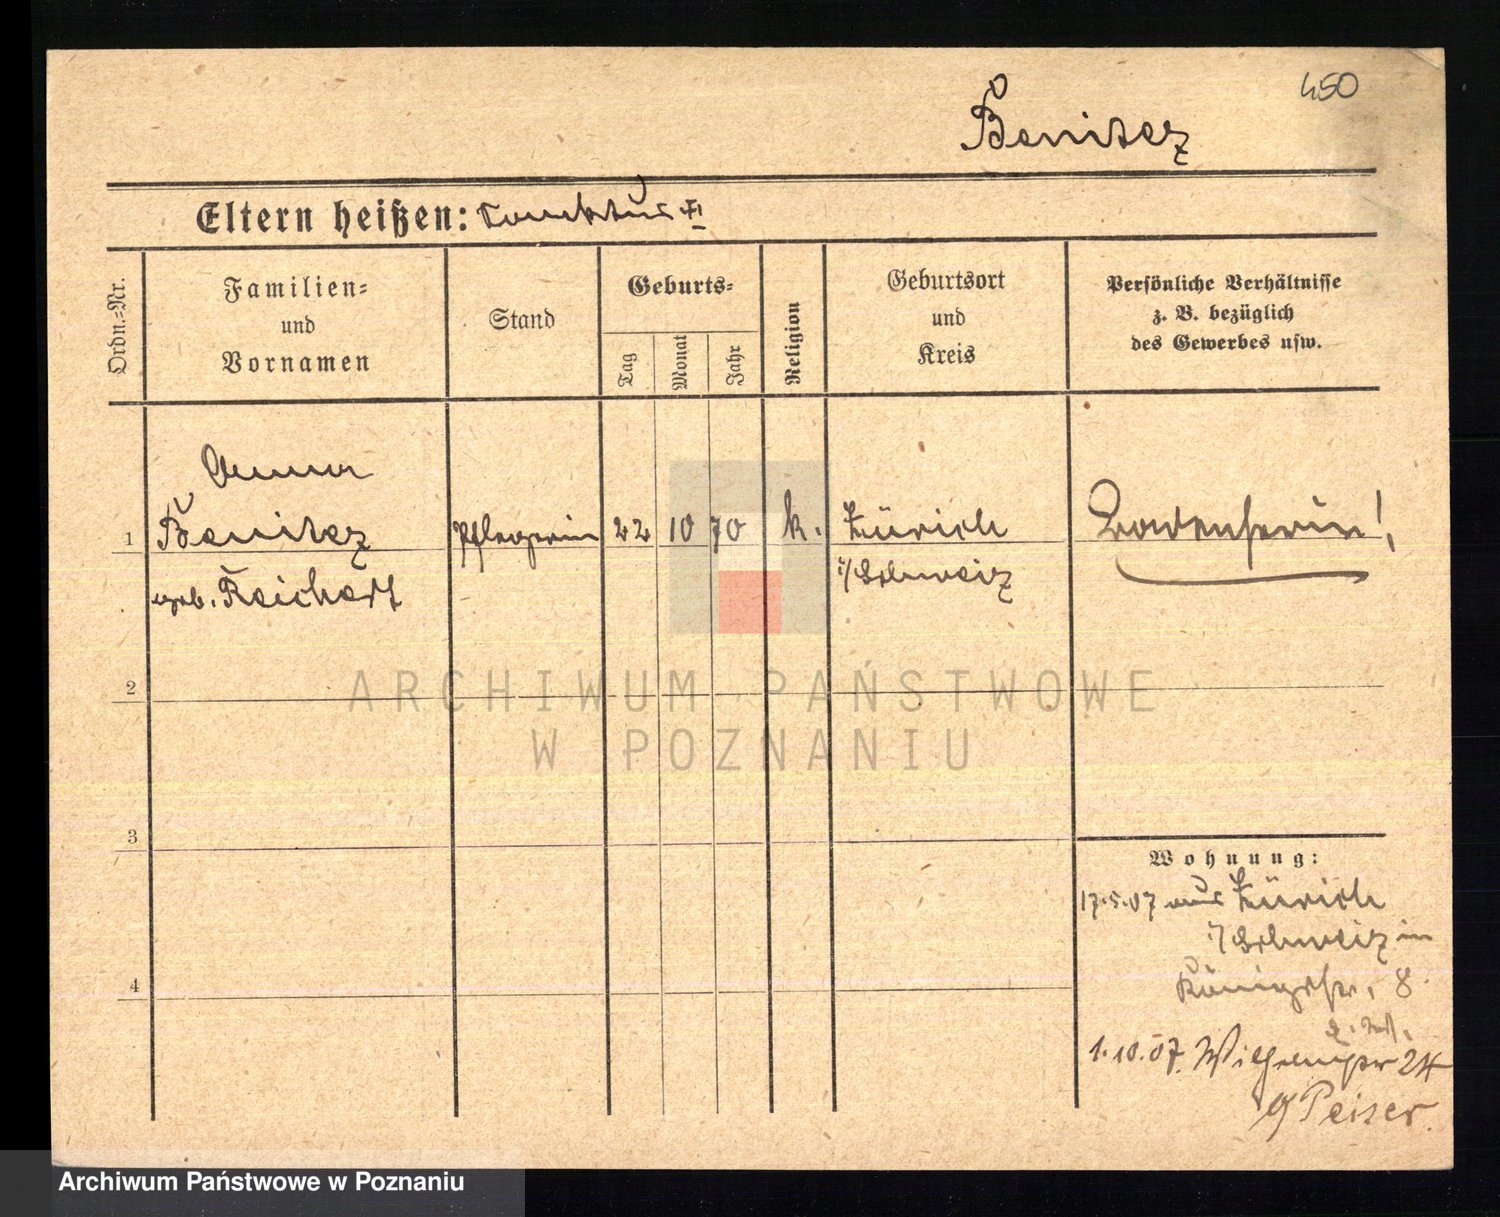 450
Benitez
Eltern heißen:
Ordn.=Nr.
Familien=
und
Vornamen
Stand
Geburts=
Tag
Monat
Jahr
Religion
Geburtsort
und
Kreis
Persönliche Verhältnisse
z. B. bezüglich
des Gewerbes usw.
Anna
1 Benitez Pflegerin 22 10 70 k. Zürich
geb. Reichert
i/Schweiz
2
3
4
Wohnung:
17.5.07 aus Zürich
i/Schweiz in
Königstr. 8
1.10.07. Wilhelmstr 24
Peiser
ARCHIWUM PAŃSTWOWE
W POZNANIU
Archiwum Państwowe w Poznaniu